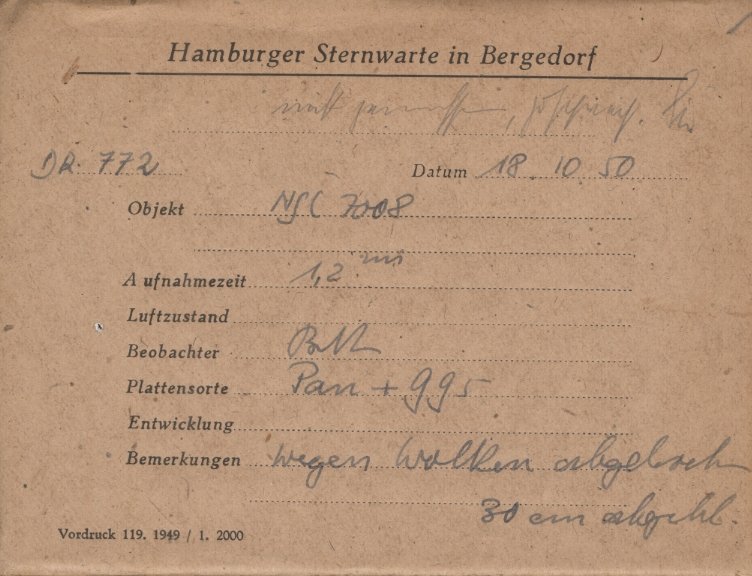 Hamburger Sternwarte in Bergedorf
mit
DR. 772 Datum 18. 10 50
Objekt NGC 7008
Aufnahmezeit 1,2 ms
Luftzustand
Beobachter
Plattensorte Pan + 995
Entwicklung
Bemerkungen wegen Wolken abgebroch
30 cm
Vordruck 119. 1949 / 1. 2000